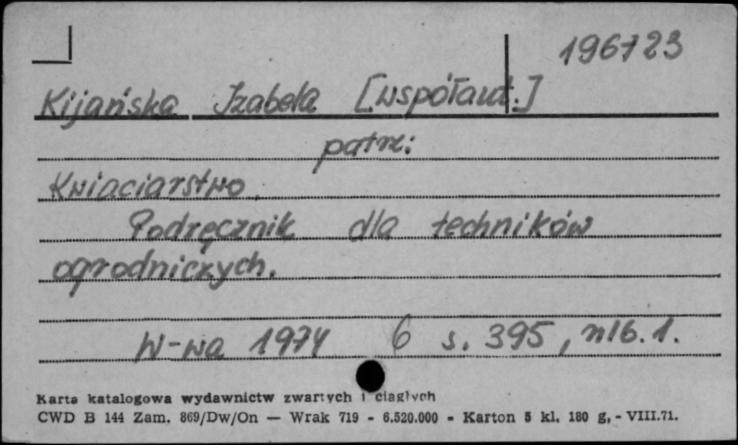 196723
Kijańska Izabela [współaut.]
patrz:
Kwiaciarstwo.
Podręcznik dla techników
ogrodniczych.
W-wa 1974 6 s. 395, nlb. 1.
Karta katalogowa wydawnictw zwartych i ciągłych
CWD B 144 Zam. 869/Dw/On — Wrak 719 - 6.520.000 - Karton 5 kl. 180 g, - VIII.71.